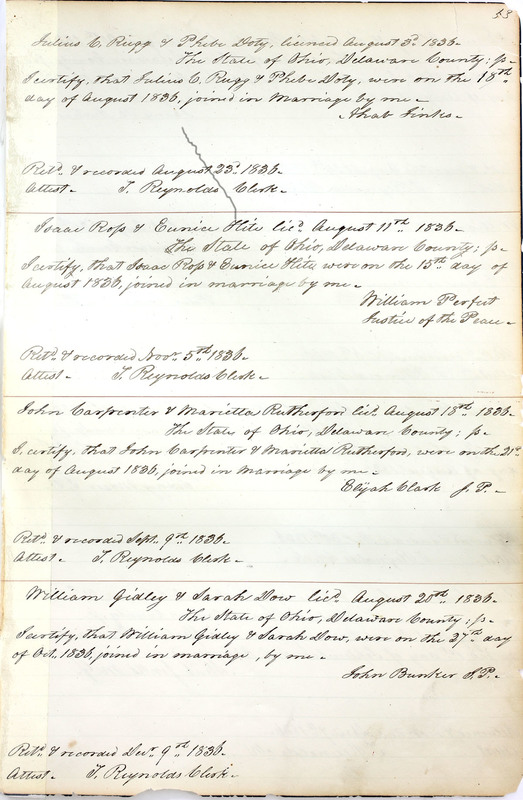 53
Julius C. Rugg & Phebe Doty, licenced August 3d. 1836-
The State of Ohio, Delaware County; ss-
I certify, that Julius C. Rugg & Phebe Doty, were on the 18th
day of August 1836, joined in Marriage by me-
Ahab Jinks-
Retd. & recorded August 23d. 1836-
Attest- T. Reynolds Clerk-
Isaac Ross & Eunice Hite licd. August 11th. 1836-
The State of Ohio, Delaware County; ss-
I certify, that Isaac Ross & Eunice Hite, were on the 15th day of
August 1836, joined in marriage by me-
William Perfect
Justice of the Peace-
Retd. & recorded Novr. 5th 1836-
Attest- T. Reynolds Clerk-
John Carpenter & Marietta Rutherford licd. August 18th. 1836-
The State of Ohio, Delaware County; ss-
I, certify, that John Carpenter & Marietta Rutherford, were on the 21st.
day of August 1836, joined in Marriage by me-
Elijah Clark J. P.-
Retd. & recorded Sept. 9th. 1836-
Attest- T. Reynolds Clerk-
William Gidley & Sarah Dow licd. August 20th. 1836-
The State of Ohio, Delaware County; ss-
I certify, that William Gidley & Sarah Dow, were on the 27th. day
of Oct. 1836, joined in marriage, by me-
John Bunker J. P.-
Retd. & recorded Decr. 9th. 1836-
Attest- T. Reynolds Clerk-